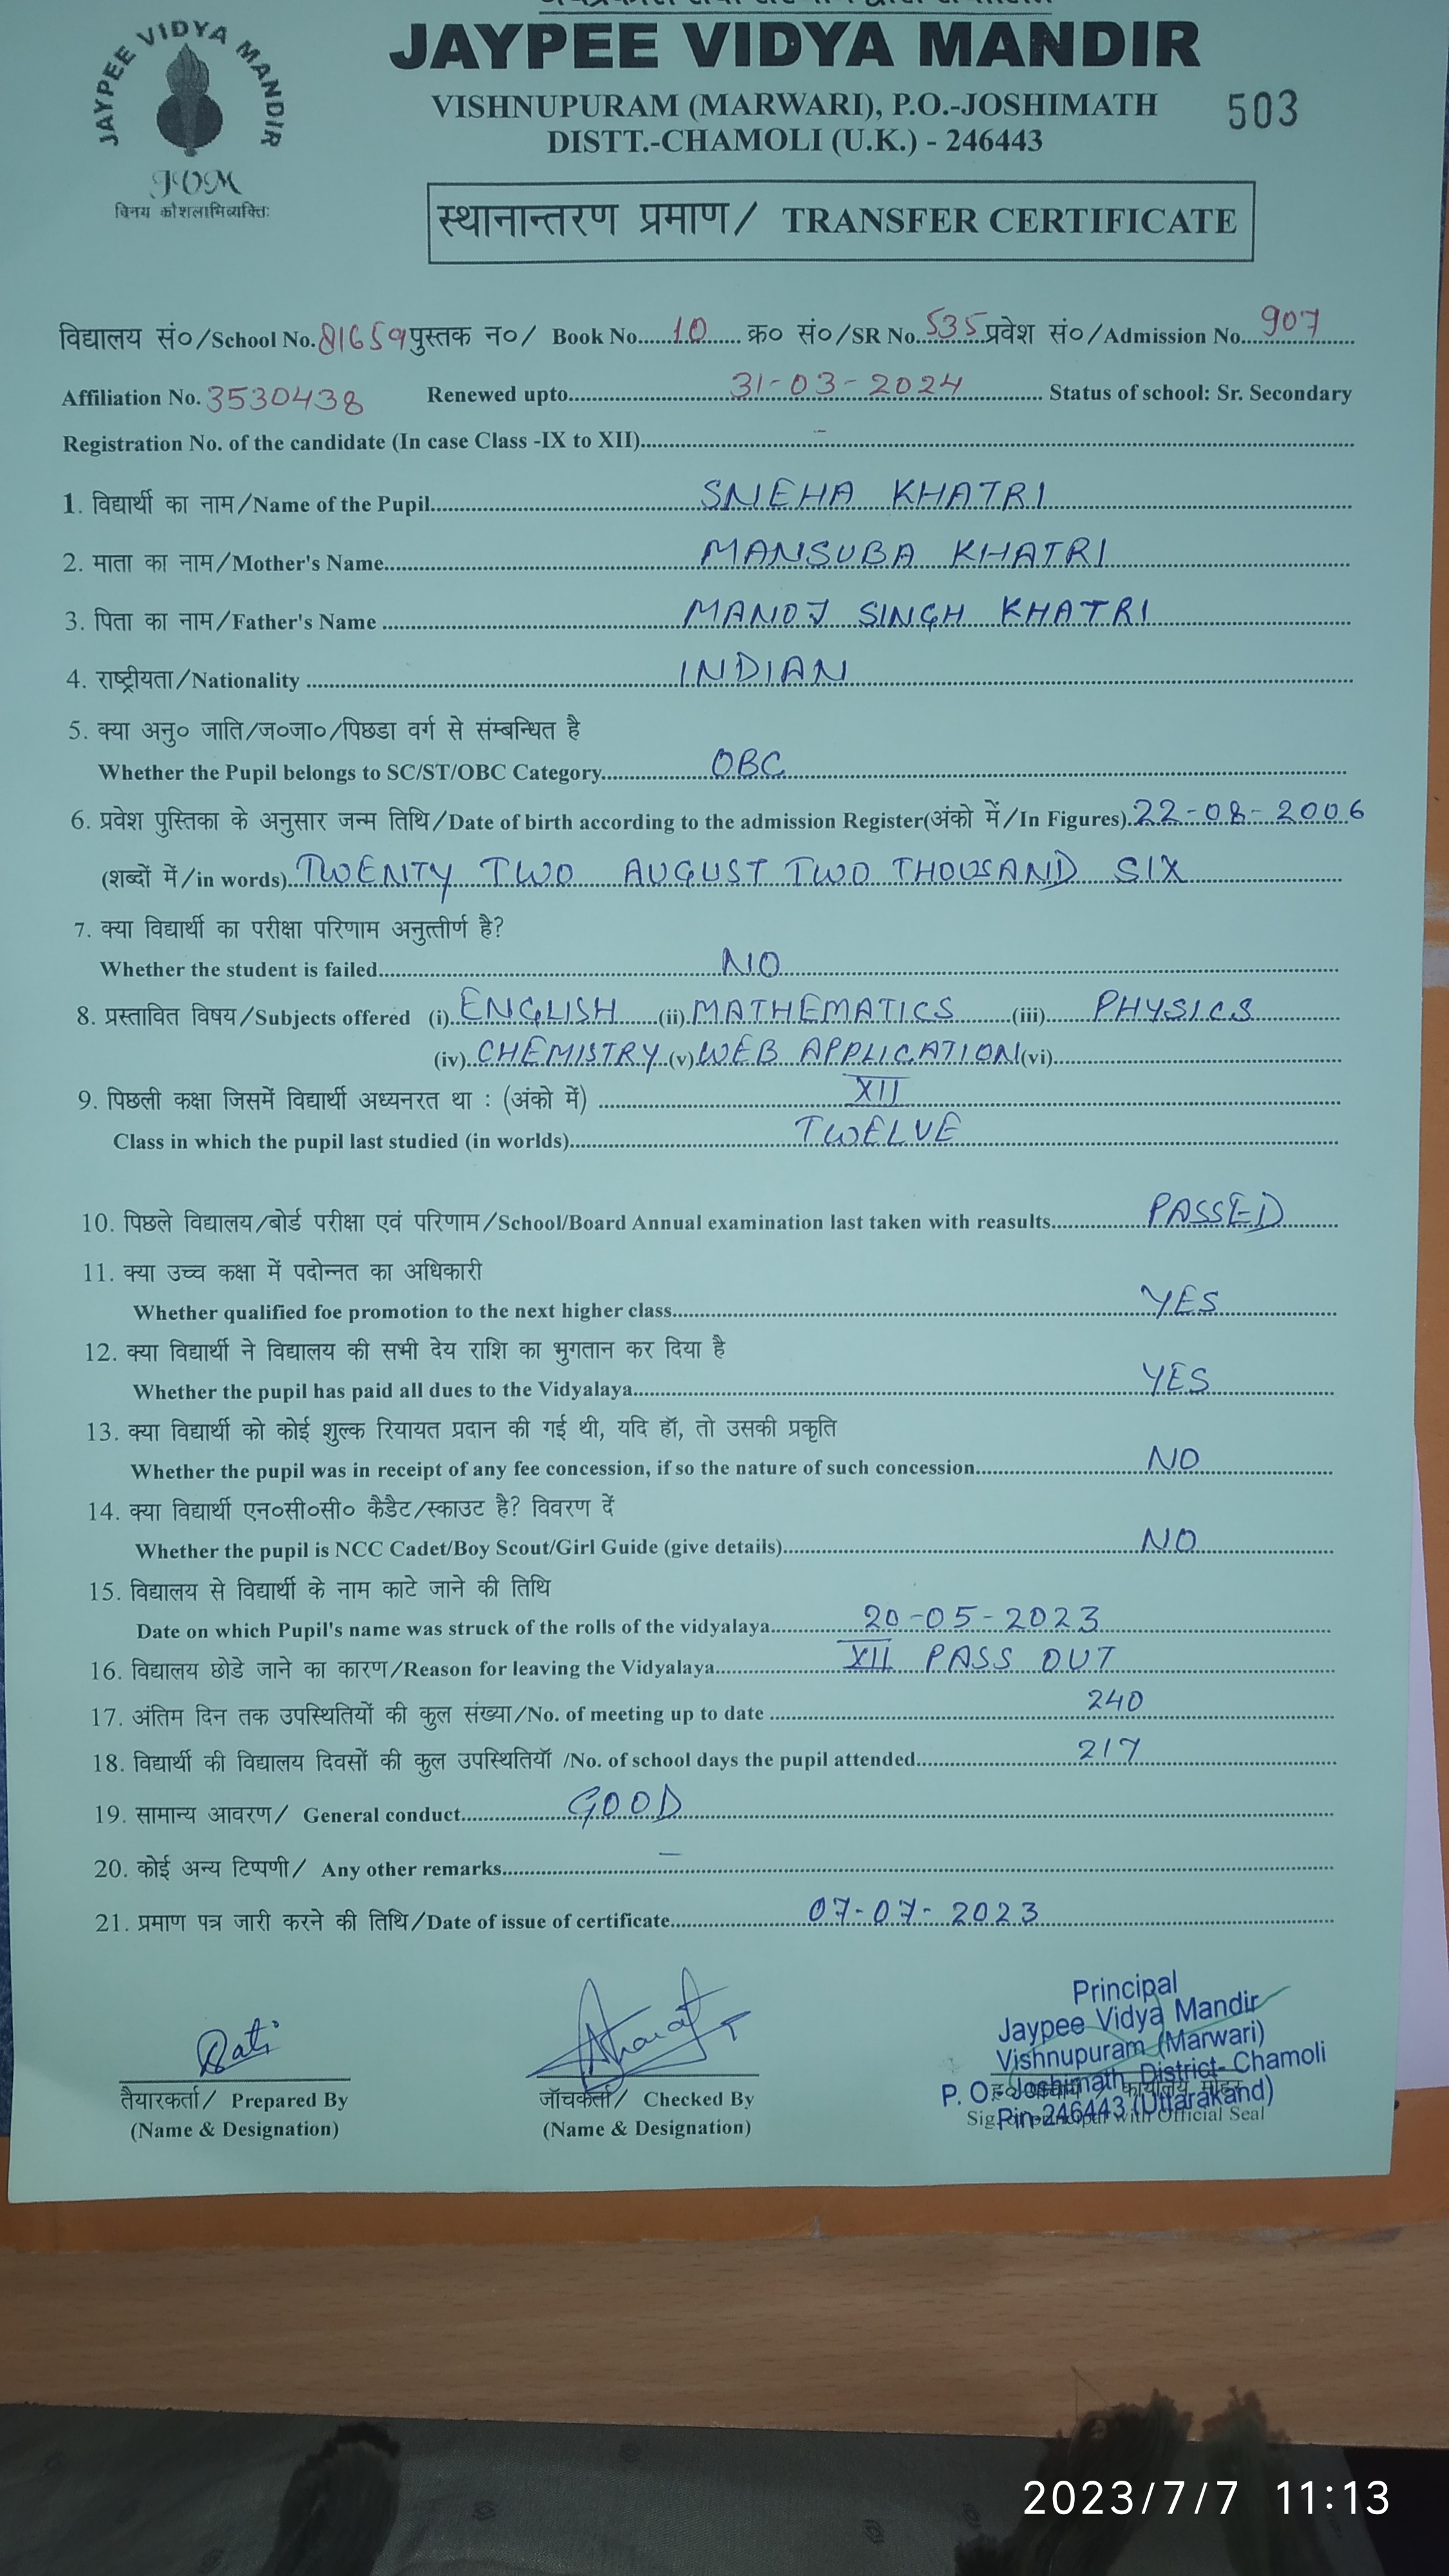 JAYPEE VIDYA MANDIR
JAYPEE VIDYA MANDIR
VISHNUPURAM (MARWARI), P.O.-JOSHIMATH
503
DISTT.-CHAMOLI (U.K.) - 246443
विनय कौशलाभिव्यक्तिः
स्थानान्तरण प्रमाण/ TRANSFER CERTIFICATE
विद्यालय सं०/School No. 81659 पुस्तक न०/ Book No. 10 क्र० सं०/SR No. 535 प्रवेश सं०/Admission No. 907
Affiliation No. 3530438 Renewed upto 31-03-2024 Status of school: Sr. Secondary
Registration No. of the candidate (In case Class -IX to XII) -
1. विद्यार्थी का नाम/Name of the Pupil SNEHA KHATRI
2. माता का नाम/Mother's Name MANSUBA KHATRI
3. पिता का नाम/Father's Name MANOJ SINGH KHATRI
4. राष्ट्रीयता/Nationality INDIAN
5. क्या अनु० जाति/ज०जा०/पिछडा वर्ग से संम्बन्धित है
Whether the Pupil belongs to SC/ST/OBC Category OBC
6. प्रवेश पुस्तिका के अनुसार जन्म तिथि/Date of birth according to the admission Register(अंको में/In Figures) 22-08-2006
(शब्दों में/in words) TWENTY TWO AUGUST TWO THOUSAND SIX
7. क्या विद्यार्थी का परीक्षा परिणाम अनुत्तीर्ण है?
Whether the student is failed NO
8. प्रस्तावित विषय/Subjects offered (i) ENGLISH (ii) MATHEMATICS (iii) PHYSICS
(iv) CHEMISTRY (v) WEB APPLICATION (vi)
9. पिछली कक्षा जिसमें विद्यार्थी अध्यनरत था : (अंको में) XII
Class in which the pupil last studied (in worlds) TWELVE
10. पिछले विद्यालय/बोर्ड परीक्षा एवं परिणाम/School/Board Annual examination last taken with reasults PASSED
11. क्या उच्च कक्षा में पदोन्नत का अधिकारी
Whether qualified foe promotion to the next higher class YES
12. क्या विद्यार्थी ने विद्यालय की सभी देय राशि का भुगतान कर दिया है
Whether the pupil has paid all dues to the Vidyalaya YES
13. क्या विद्यार्थी को कोई शुल्क रियायत प्रदान की गई थी, यदि हॉ, तो उसकी प्रकृति
Whether the pupil was in receipt of any fee concession, if so the nature of such concession NO
14. क्या विद्यार्थी एन०सी०सी० कैडैट/स्काउट है? विवरण दें
Whether the pupil is NCC Cadet/Boy Scout/Girl Guide (give details) NO
15. विद्यालय से विद्यार्थी के नाम काटे जाने की तिथि
Date on which Pupil's name was struck of the rolls of the vidyalaya 20-05-2023
16. विद्यालय छोडे जाने का कारण/Reason for leaving the Vidyalaya XII PASS OUT
17. अंतिम दिन तक उपस्थितियों की कुल संख्या/No. of meeting up to date 240
18. विद्यार्थी की विद्यालय दिवसों की कुल उपस्थितियॉ /No. of school days the pupil attended 217
19. सामान्य आवरण/ General conduct GOOD
20. कोई अन्य टिप्पणी/ Any other remarks -
21. प्रमाण पत्र जारी करने की तिथि/Date of issue of certificate 07-07-2023
Principal
Jaypee Vidya Mandir
Vishnupuram (Marwari)
P. O.- Joshimath, District- Chamoli
Pin-246443 (Uttarakand)
तैयारकर्ता/ Prepared By
(Name & Designation)
जॉचकर्ता/ Checked By
(Name & Designation)
with Official Seal
2023/7/7 11:13